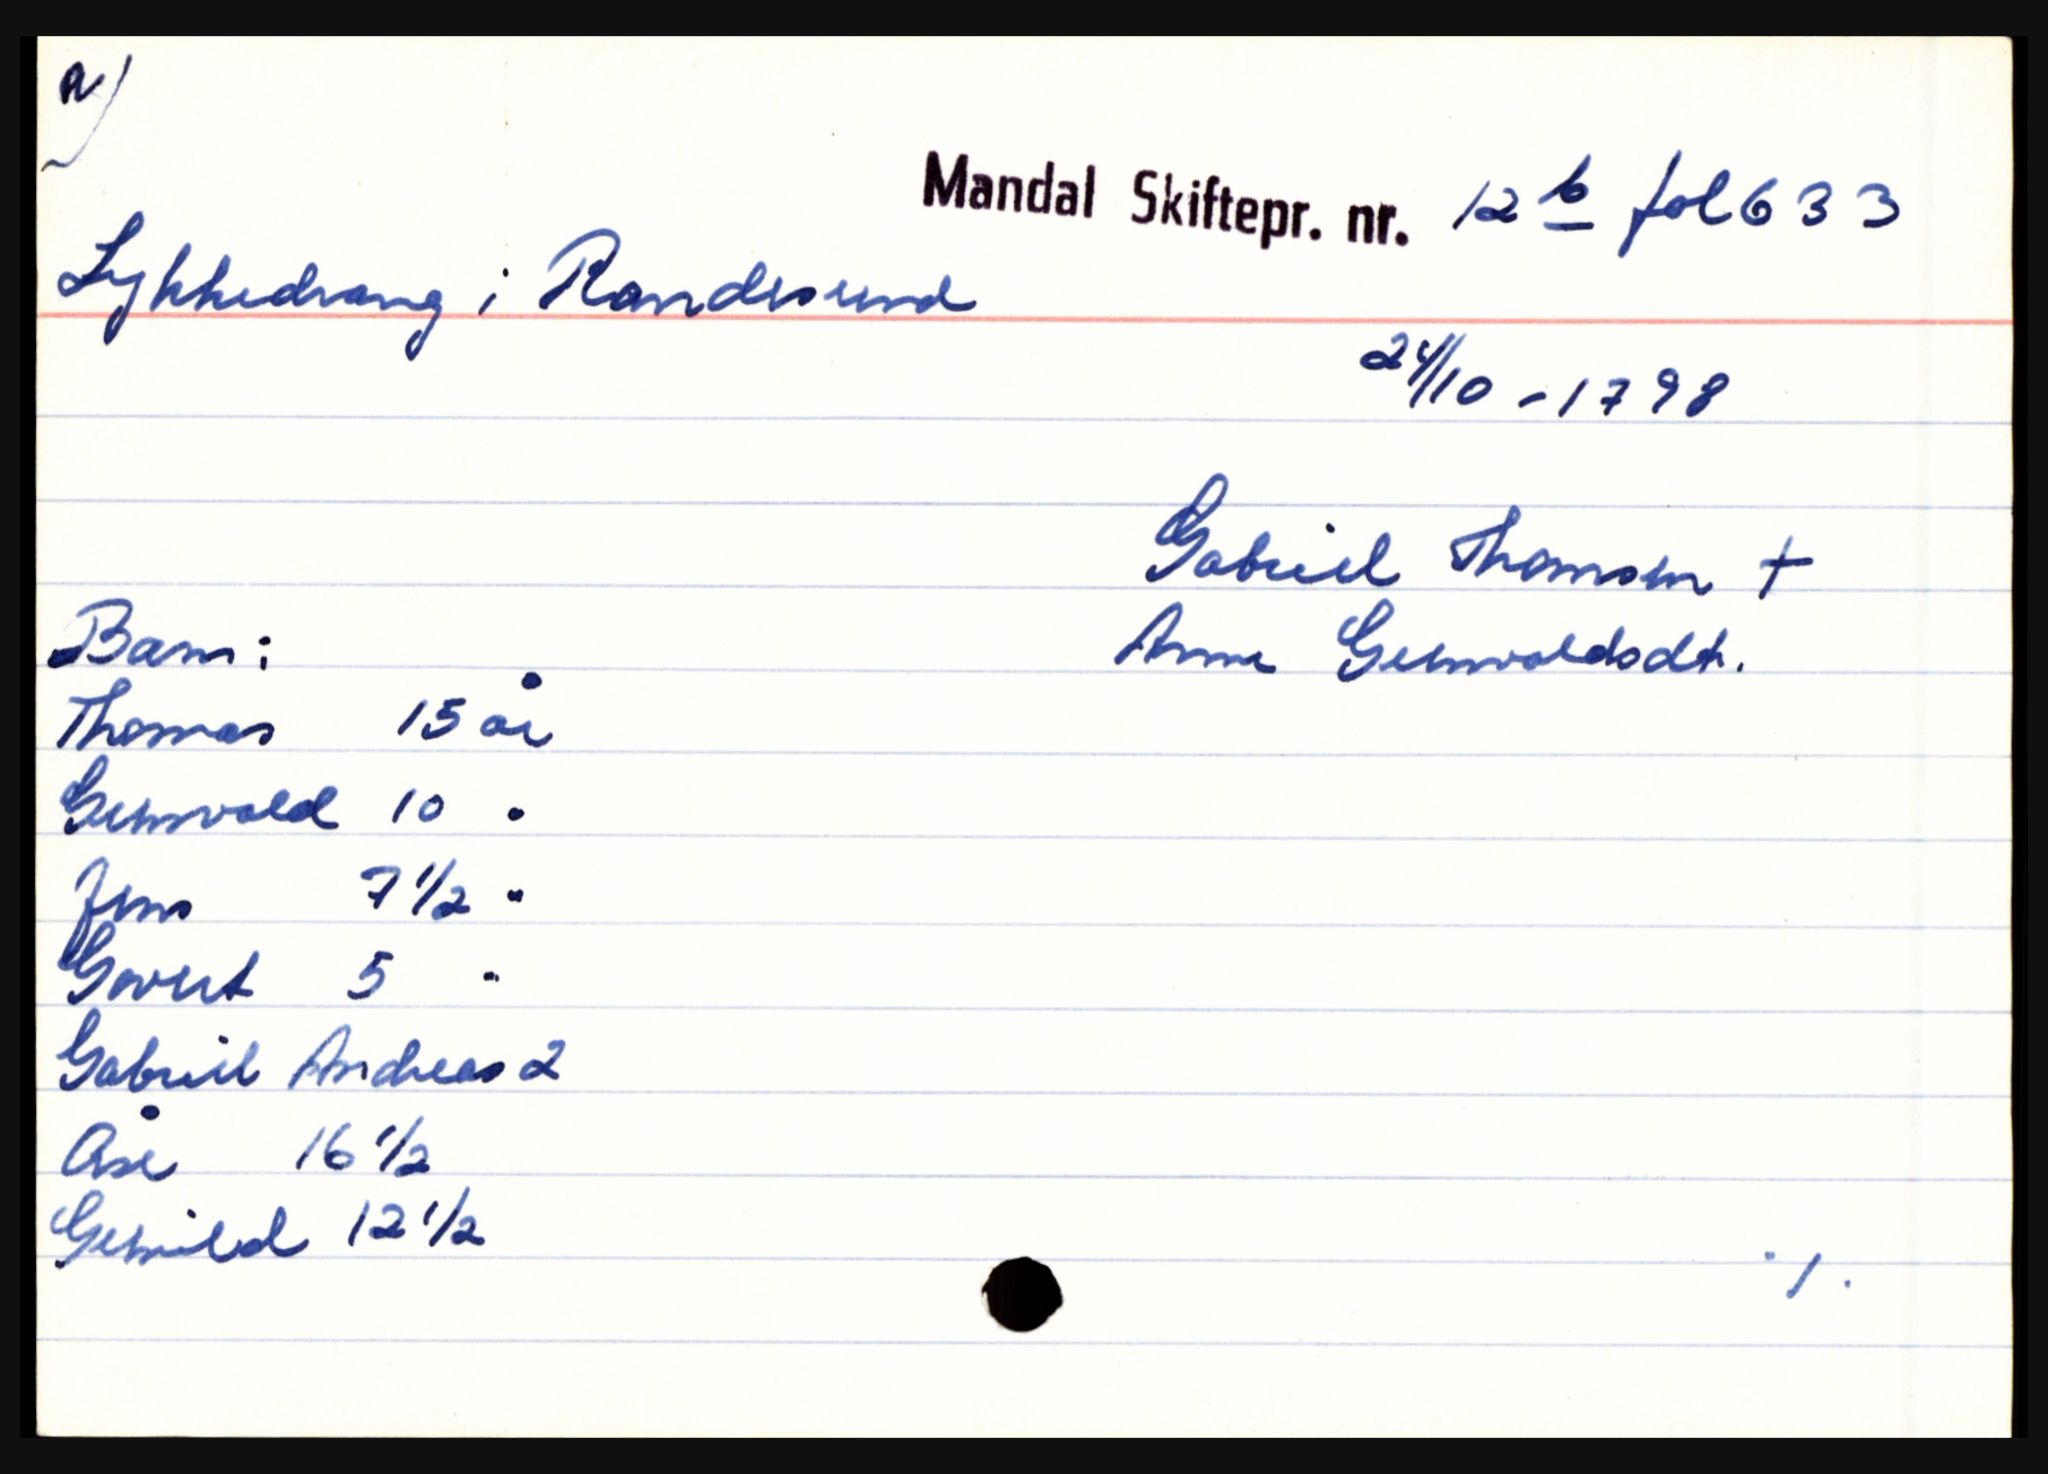 a)
Mandal Skiftepr. nr. 12 b fol 633
Lykkedrang i Randesund
24/10 - 1798
Gabriel Thomsen +
Anne Gunvaldsdtr.
Barn:
Thomas 15 år
Gunvald 10 "
Jens 7 1/2 "
Govert 5 "
Gabriel Andreas 2
Åse 16 1/2
Gunild 12 1/2
·/.